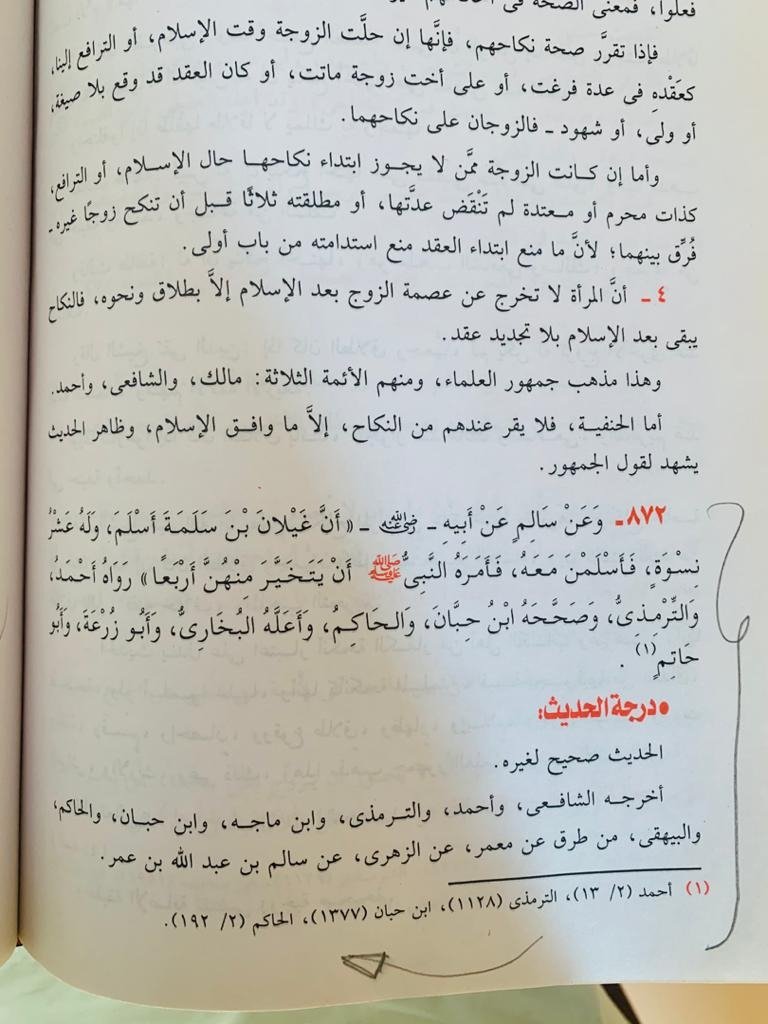 فعلوا، فمعنى الصحة فى
فإذا تقرَّر صحة نكاحهم، فإنَّها إن حلَّت الزوجة وقت الإسلام، أو الترافع إلينا،
كعَقْدِهِ فى عدة فرغت، أو على أخت زوجة ماتت، أو كان العقد قد وقع بلا صيغة،
أو ولى، أو شهود ـ فالزوجان على نكاحهما.
وأما إن كانت الزوجة ممَّن لا يجوز ابتداء نكاحها حال الإسلام، أو الترافع،
كذات محرم أو معتدة لم تَنْقَض عدتَّها، أو مطلقته ثلاثًا قبل أن تنكح زوجًا غيره ـ
فُرِّق بينهما؛ لأنَّ ما منع ابتداء العقد منع استدامته من باب أولى.
٤ ـ أنَّ المرأة لا تخرج عن عصمة الزوج بعد الإسلام إلاَّ بطلاق ونحوه، فالنكاح
يبقى بعد الإسلام بلا تجديد عقد.
وهذا مذهب جمهور العلماء، ومنهم الأئمة الثلاثة: مالك، والشافعى، وأحمد.
أما الحنفية، فلا يقر عندهم من النكاح، إلاَّ ما وافق الإسلام، وظاهر الحديث
يشهد لقول الجمهور.
٨٧٢ـ وَعَنْ سَالِمٍ عَنْ أَبِيهِ ـ رضي الله عنه ـ «أَنَّ غَيْلانَ بْنَ سَلَمَةَ أَسْلَمَ، وَلَهُ عَشْرُ
نِسْوَةٍ، فَأَسْلَمْنَ مَعَهُ، فَأَمَرَهُ النَّبِىُّ ﷺ أَنْ يَتَخَيَّرَ مِنْهُنَّ أَرْبَعًا» رَوَاهُ أَحْمَدُ،
وَالتِّرْمِذِىُّ، وَصَحَّحَهُ ابْنُ حِبَّانَ، وَالحَاكِمُ، وَأَعَلَّهُ البُخَارِىُّ، وَأَبُو زُرْعَةَ، وَأَبُو
حَاتِمٍ(١).
• درجة الحديث:
الحديث صحيح لغيره.
أخرجه الشافعى، وأحمد، والترمذى، وابن ماجه، وابن حبان، والحاكم،
والبيهقى، من طرق عن معمر، عن الزهرى، عن سالم بن عبد الله بن عمر.
(١) أحمد (٢/ ١٣)، الترمذى (١١٢٨)، ابن حبان (١٣٧٧)، الحاكم (٢/ ١٩٢).